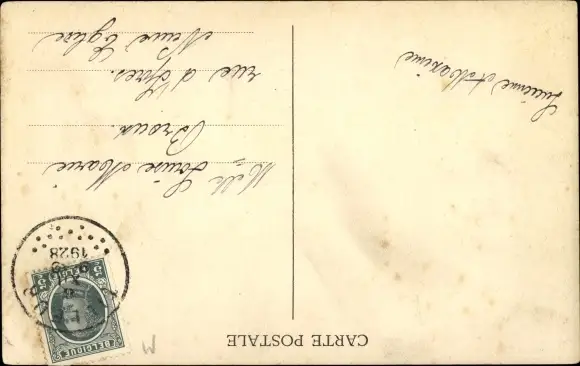 CARTE POSTALE
Lucienne & Maxime
Melle Louise Marie
Broux.
rue d'Ypres.
Neuve Eglise
BELGIQUE
5
1928
W